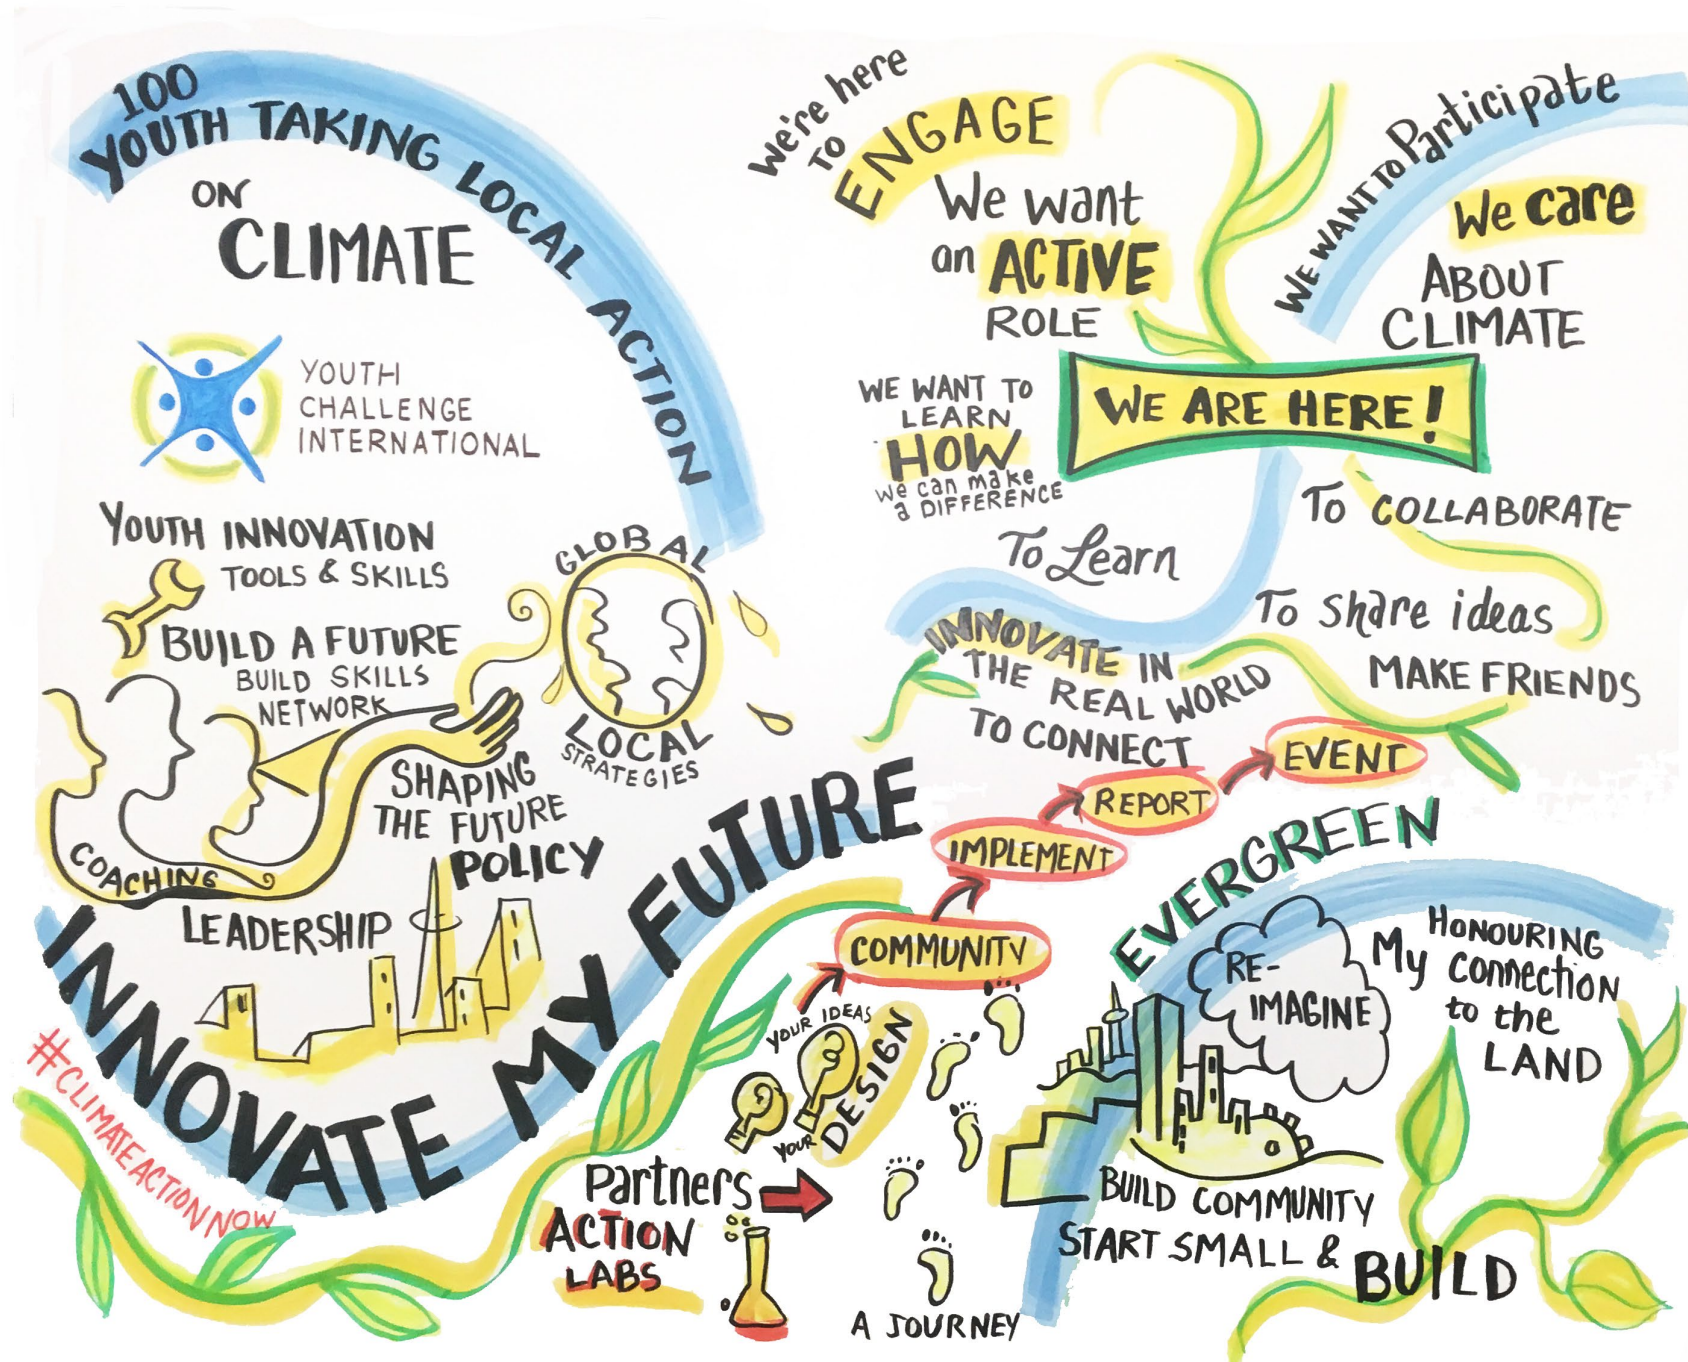 100
YOUTH TAKING LOCAL ACTION
ON
CLIMATE
YOUTH
CHALLENGE
INTERNATIONAL
YOUTH INNOVATION
TOOLS & SKILLS
BUILD A FUTURE
BUILD SKILLS
NETWORK
GLOBAL
LOCAL
STRATEGIES
SHAPING
THE FUTURE
POLICY
COACHING
LEADERSHIP
INNOVATE MY FUTURE
#CLIMATEACTIONNOW
We're here
TO
ENGAGE
We want
an ACTIVE
ROLE
WE WANT TO Participate
We care
ABOUT
CLIMATE
WE ARE HERE!
WE WANT TO
LEARN
HOW
we can make
a DIFFERENCE
To Learn
To COLLABORATE
To share ideas
MAKE FRIENDS
INNOVATE IN
THE REAL WORLD
TO CONNECT
EVENT
REPORT
IMPLEMENT
COMMUNITY
YOUR IDEAS
YOUR DESIGN
Partners
ACTION
LABS
A JOURNEY
EVERGREEN
RE-
IMAGINE
HONOURING
My connection
to the
LAND
BUILD COMMUNITY
START SMALL &
BUILD